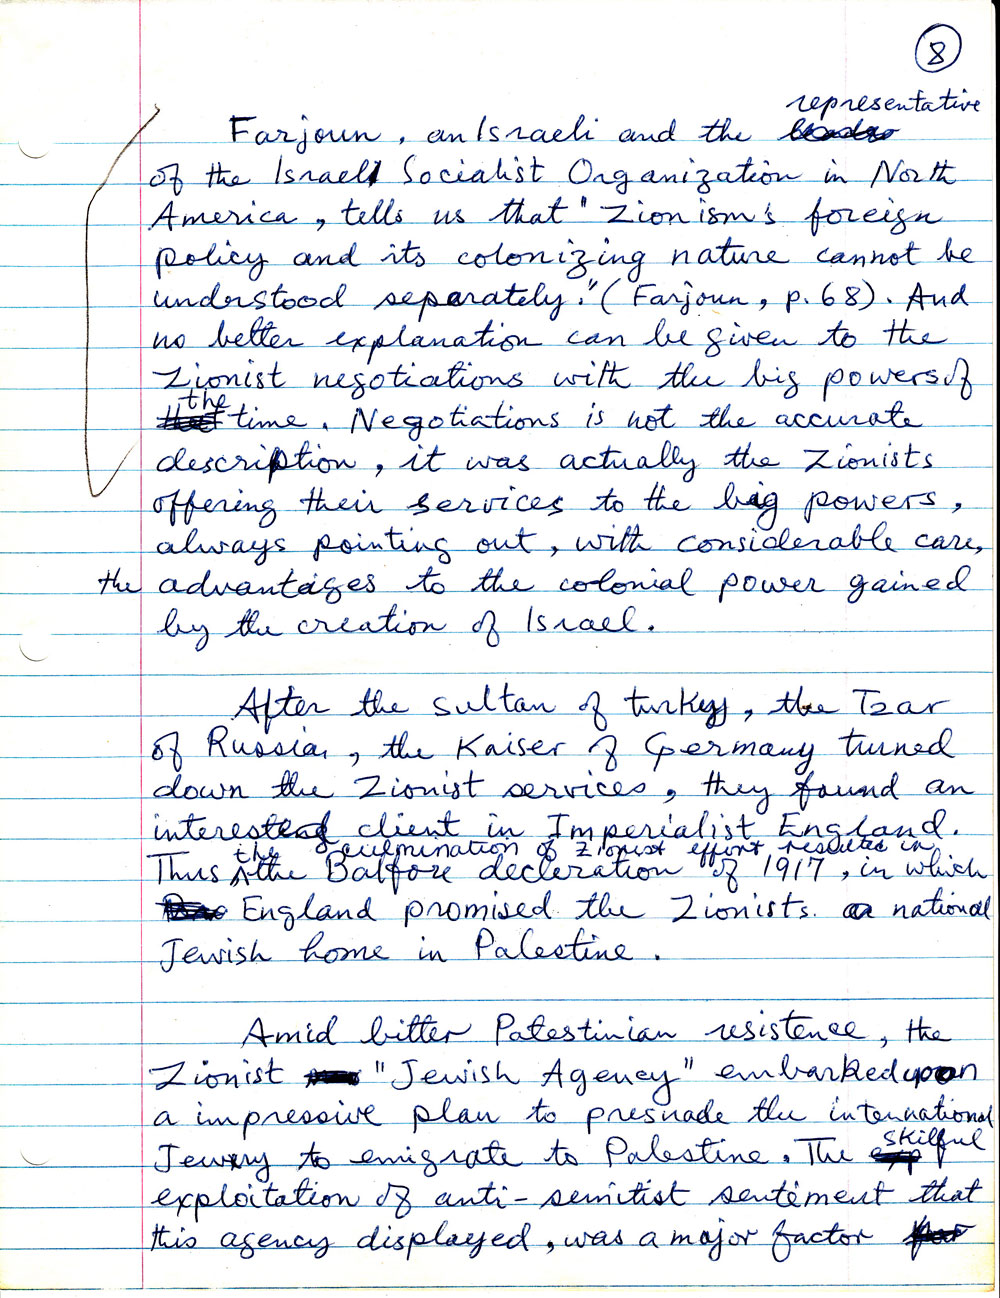 8
representative
Farjoun, an Israeli and the
of the Israel Socialist Organization in North
America, tells us that "Zionism's foreign
policy and its colonizing nature cannot be
understood separately." (Farjoun, p. 68). And
no better explanation can be given to the
Zionist negotiations with the big powers of
the
time. Negotiations is not the accurate
description, it was actually the Zionists
offering their services to the big powers,
always pointing out, with considerable care,
the advantages to the colonial power gained
by the creation of Israel.
After the sultan of turkey, the Tzar
of Russia, the Kaiser of Germany turned
down the Zionist services, they found an
interested client in Imperialist England.
the culmination of Zionist effort resulted in
Thus the Balfore decleration of 1917, in which
England promised the Zionists a national
Jewish home in Palestine.
Amid bitter Palestinian resistence, the
Zionist "Jewish Agency" embarked upon
a impressive plan to presuade the international
Jewery to emigrate to Palestine. The
skilful
exploitation of anti-semitist sentement that
this agency displayed, was a major factor